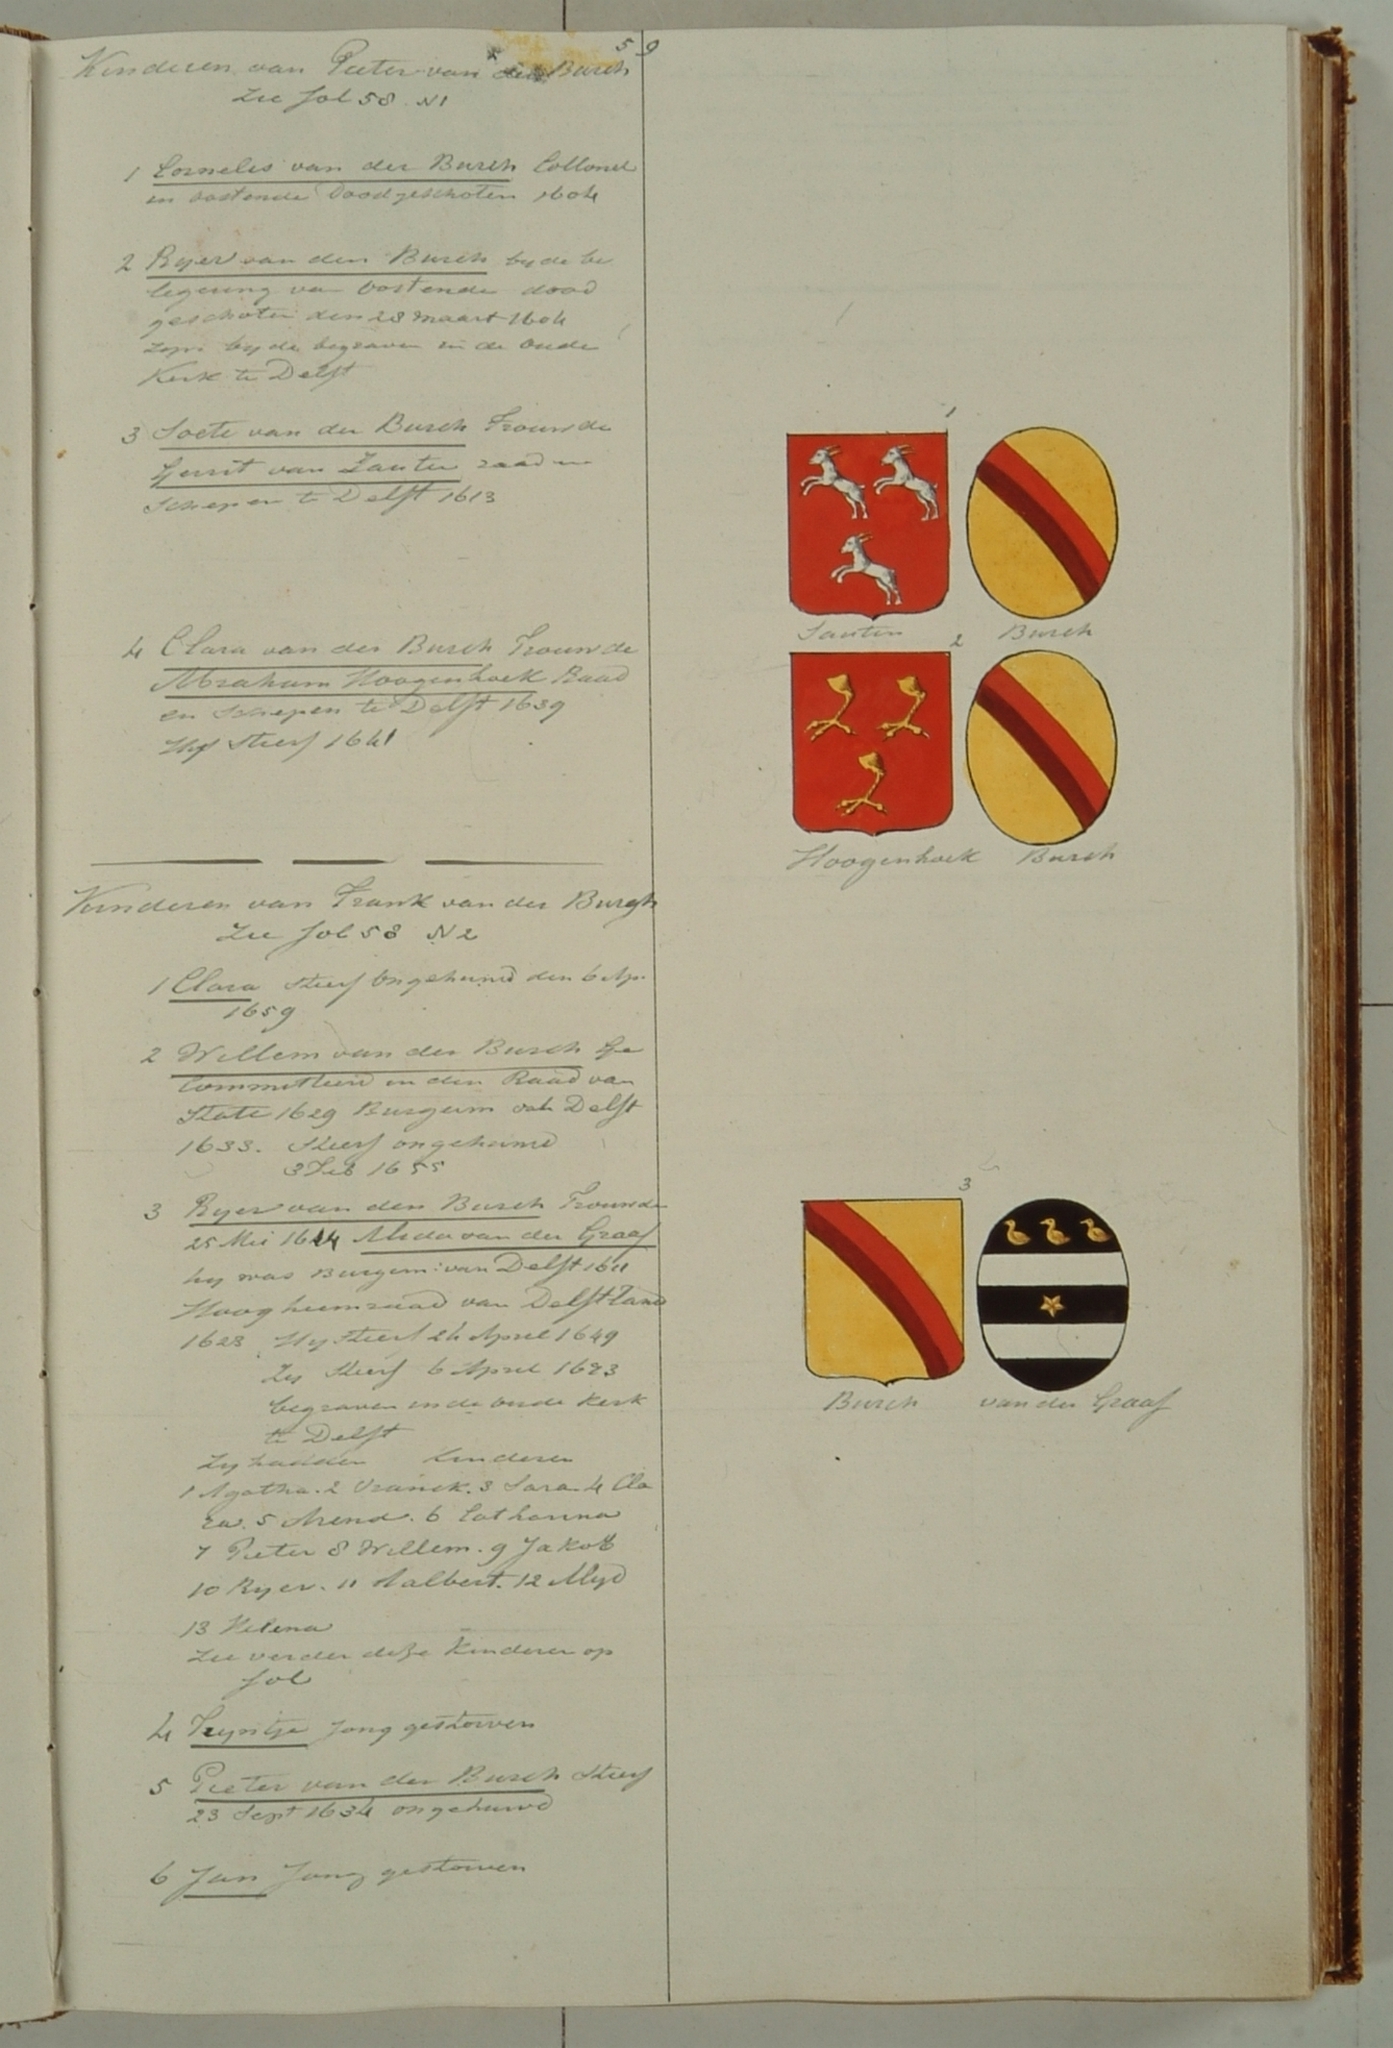 59
Kinderen van Pieter van der Burch
Zie fol 58 N1
1 Cornelis van der Burch Collonel
in oostende Doodgeschoten 1604
2 Ryer van der Burch by de be
legering van Oostende dood
geschoten den 28 maart 1604
zyn begraven in de Oude
Kerk te Delft
3 Soete van der Burch Trouwde
Gerrit van Santen raad en
Schepen te Delft 1613
4 Clara van der Burch Trouwde
Abraham Hoogenhoek Raad
en Schepen te Delft 1639
Hy Stierf 1641
Kinderen van Frank van der Burgh
Zie fol 58 N2
1 Clara Stierf Ongehuwd den 6 Ap.
1659
2 Willem van der Burch Ge
Committeerd in den Raad van
State 1629 Burgem van Delft
1633. Stierf ongehuwd
3 Feb 1655
3 Ryer van der Burch Trouwde
25 Mei 1614 Alida van der Graaf
hy was Burgem: van Delft
Hoogheemraad van Delftland
1628 Hy Stierf 24 April 1649
Zy Stierf 6 April
begraven in de oude Kerk
te Delft
Zy hadden Kinderen
1 Agatha. 2 Vranck. 3 Sara. 4 Cla
ra. 5 Arend. 6 Catharina
7 Pieter 8 Willem. 9 Jakob
10 Ryer. 11 Aalbert. 12 Alyd
13 Helena
Zie verder deze Kinderen op
fol
4 Tryntje Jong gestorven
5 Pieter van der Burch Stierf
23 Sept 1634 ongehuwd
6 Jan Jong gestorven
1
Santen Burch
2
Hoogenhoek Burch
3
Burch van der Graaf